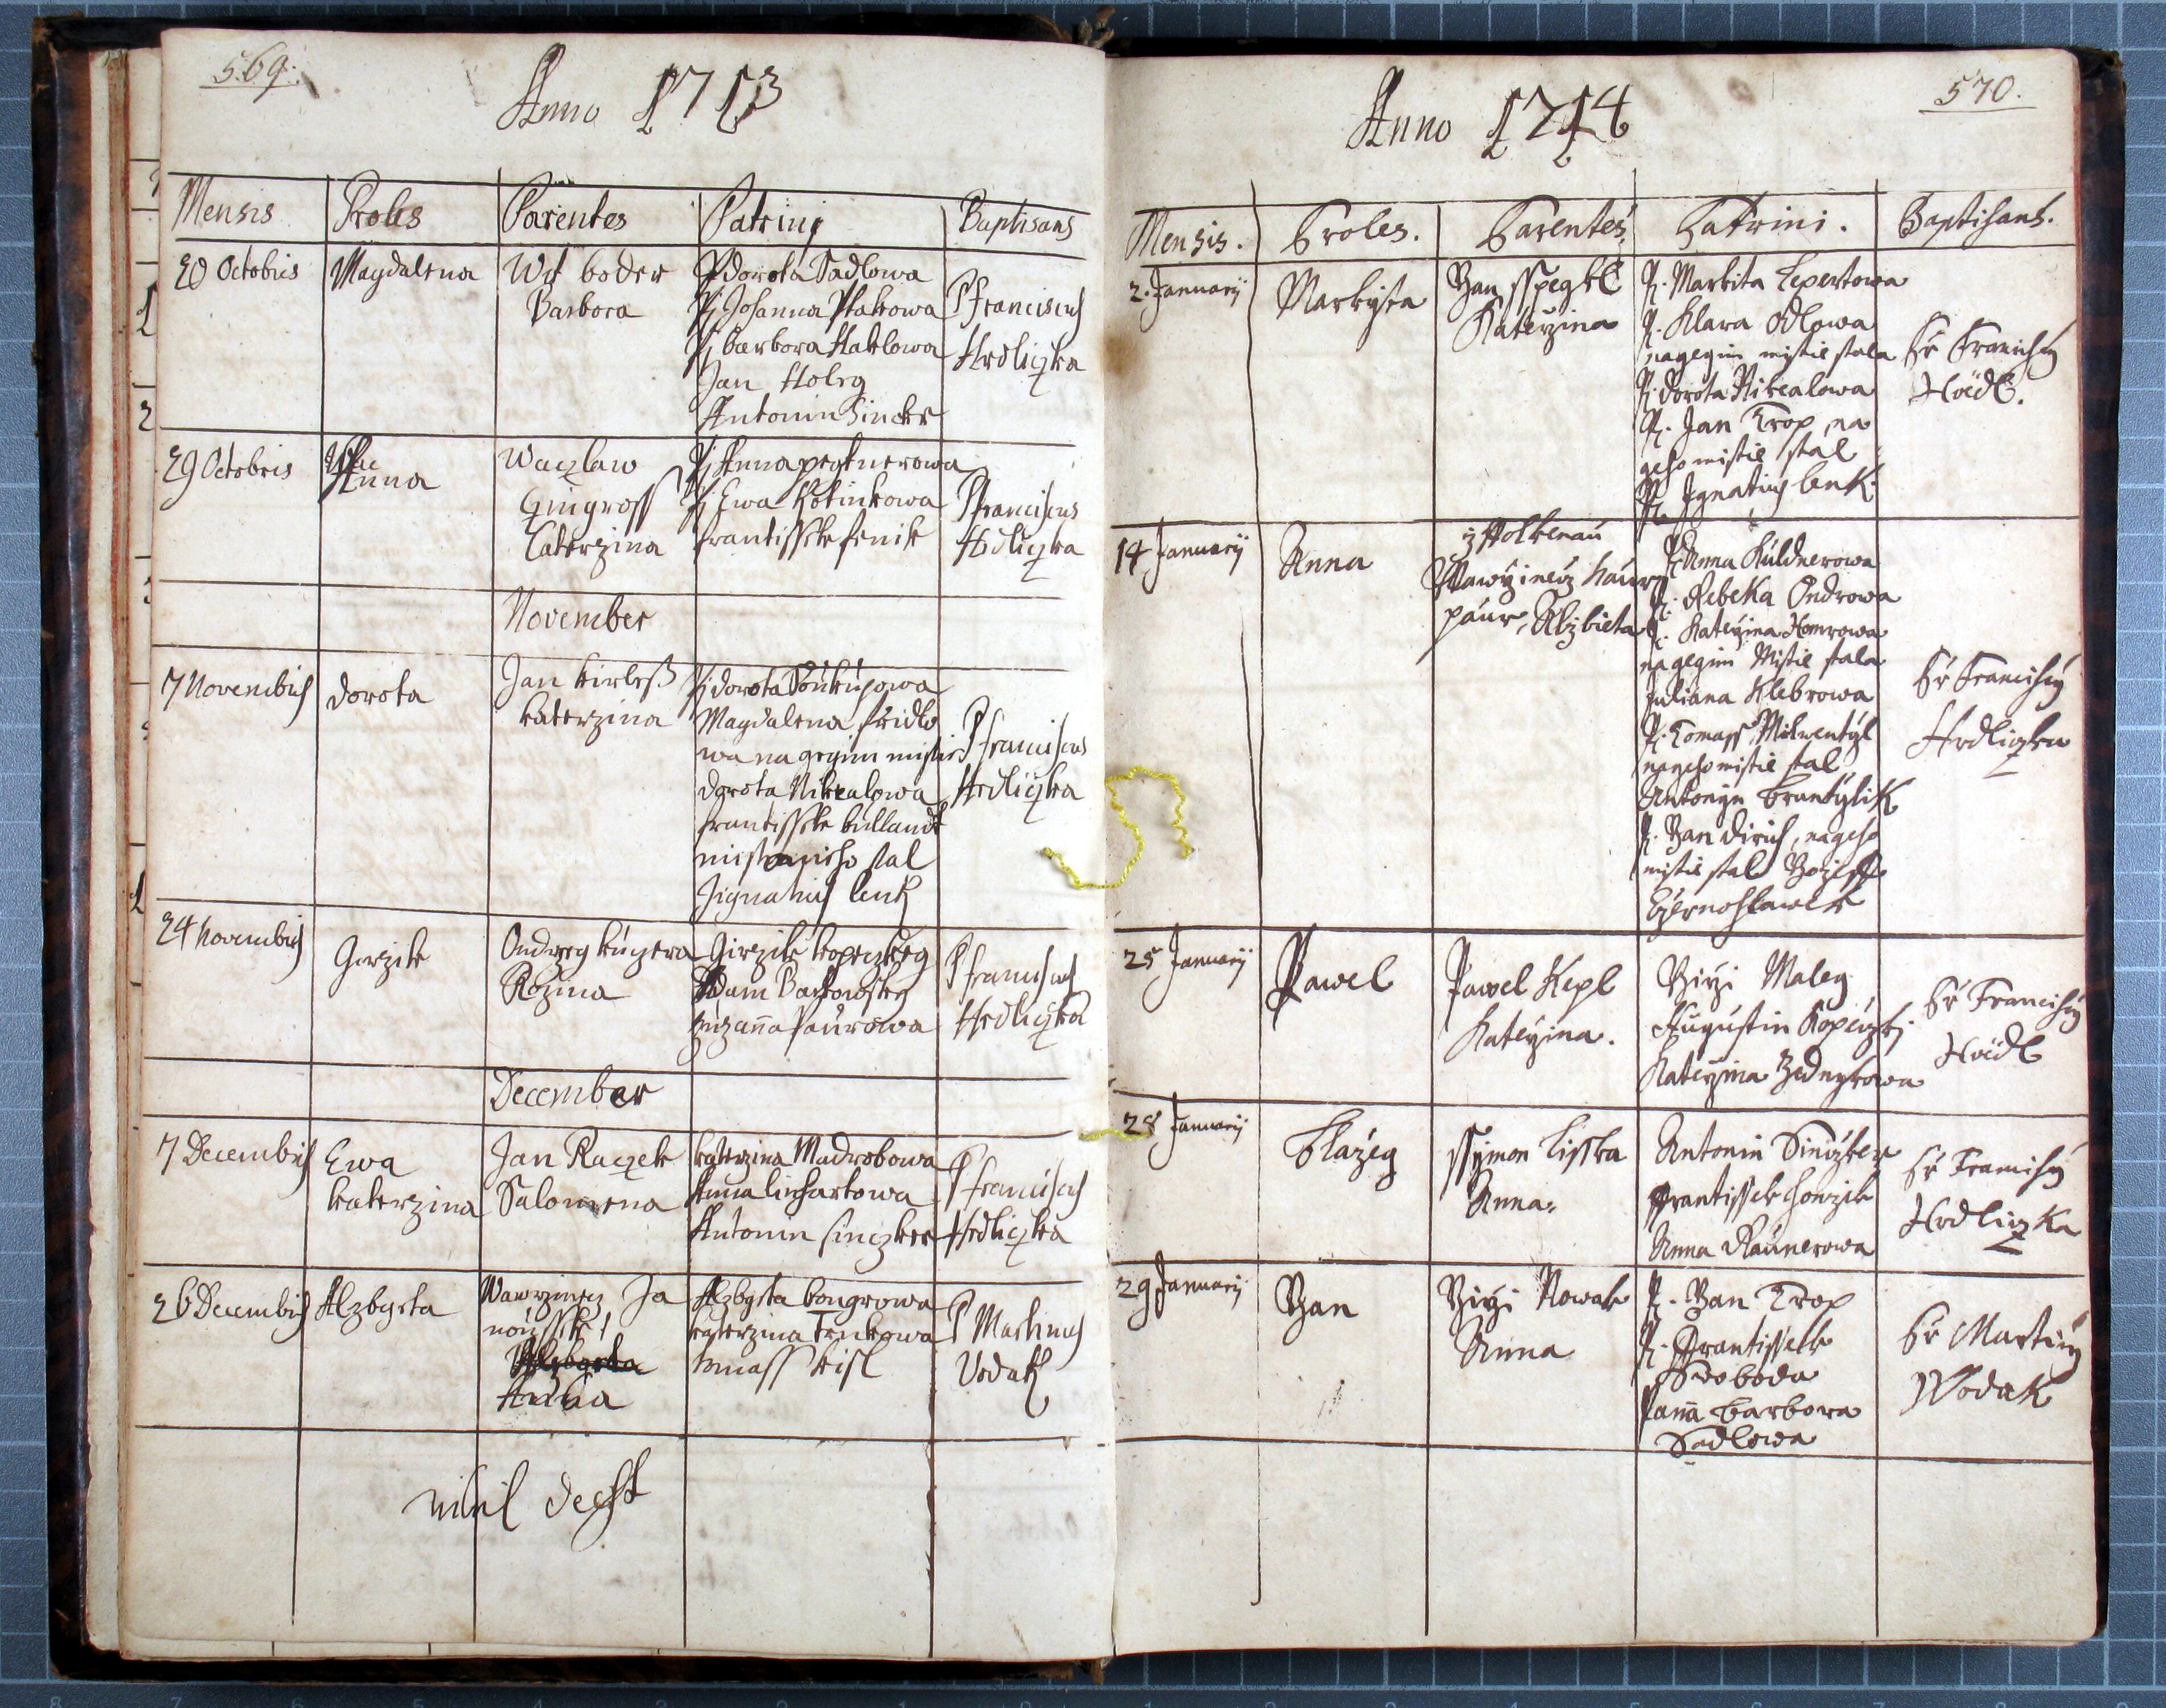 569.
Anno 1713
Mensis Proles Parentes Patrinj Baptisans
20 Octobris Magdalena Wit boder
Barbora
Pj dorota Sadlowa
Pj Johanna Ptakowa
Pj barbora Hablowa
Jan Holeg
Antonin Sincker
P Franciscus
Hrdliczka
29 Octobris Anna Waczlaw
Gingross
Caterzina
Pj Anna pegknerowa
Pj Ewa Kotinkowa
frantissek fenik
P Franciscus
Hrdliczka
November
7 Novembris dorota Jan kirless
katerzina
Pj dorota Soukupowa
Magdalena fridlo
wa na gegim mistie
dorota Nikealowa
frantissek bullandt
misto niho stal
Jignatius lenk
P franciscus
Hrdliczka
24 Novembris Girzik Ondrzeg kuczera
Rozina
Girzik kopeczkeg
Adam Barkowskeg
zuzanna saurowa
P franciscus
Hrdliczka
December
7 Decembris Ewa
katerzina
Jan Raczek
Salomena
katerzina Madrobowa
Anna linhartowa
Antonin sinczker
P franciscus
Hrdliczka
26 Decembris Alzbgeta Wawrzinecz Ja
noussek
Anna
Alzbgeta bongrowa
katerzina Trnkowa
tomass kisl
P Martinus
Vodak
nihil deest
570.
Anno 1714
Mensis. Proles. Parentes. Patrini. Baptisans.
2. Januarij Markyta Jan sspegkl
Kateržina
P. Markita Lepertowa
P. Klara Odlowa
na gegim mistie stala
P. dorota Nikealowa
P. Jan Krop, na
geho mistie stal
P. Ignatius lenk.
Pr Franciscus
Hrdl.
14 Januarij Anna z Holkenau
Wawržinecz haurz
paur, Alzbieta
P. Anna Kuldnerowa
P. Rebeka Ondrowa
P. Kateržina Homrowa
na gegim Mistie stala
Juliana Klebrowa
P. Tomass Mikwentyl
na geho mistie stal
Antonyn Frantylik
P. Jan Dirich, na geho
mistie stal Jozeff
Czernohlawek
Pr Franciscus
Hrdliczka
25 Januarij Pawel Pawel Kepl
Kateržina.
Jirži Maleg
Augustin Kopeczkj
Kateržina Zednykowa
Pr Franciscus
Hrdl
28 Januarij Blažeg Ssymon Lisska
Anna.
Antonin Sinczker
Frantissek honzik
Anna Raunerowa
Pr Franciscus
Hrdliczka
29 Januarij Jan Jirži Nowak
Anna
P. Jan Krop
P. Frantissek
Swoboda
Panna Barbora
Sadlowa
Pr Martinus
Wodak